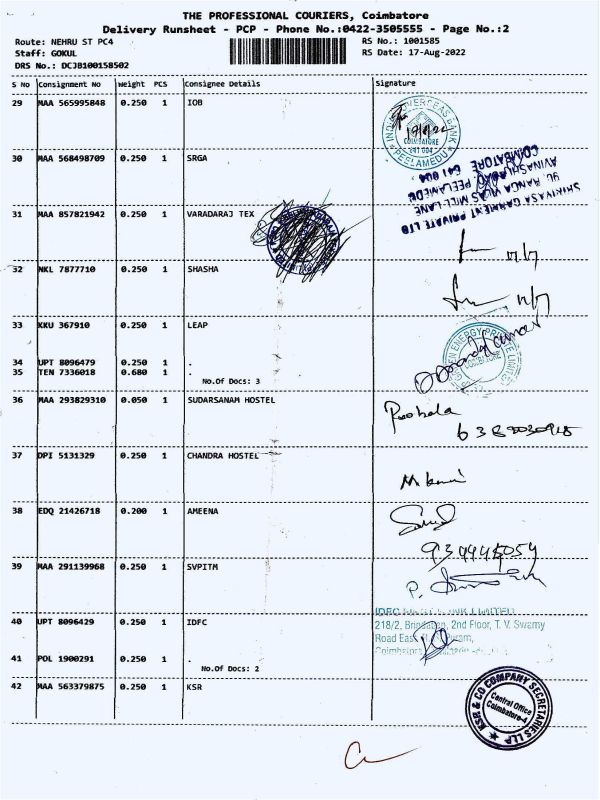 THE PROFESSIONAL COURIERS, Coimbatore
Delivery Runsheet - PCP - Phone No.:0422-3505555 - Page No.:2
Route: NEHRU ST PC4 RS No.: 1001585
Staff: GOKUL RS Date: 17-Aug-2022
DRS No.: DCJB100158502
S No Consignment No Weight PCS Consignee Details Signature
29 MAA 565995848 0.250 1 IOB
INDIAN OVERSEAS BANK
COIMBATORE
641 004
PEELAMEDU
30 MAA 568498709 0.250 1 SRGA
SRINIVASA GARMENT PRIVATE LTD
90, RANGA VILAS MILL LANE
AVINASHI ROAD PEELAMEDU
COIMBATORE 641 004
31 MAA 857821942 0.250 1 VARADARAJ TEX
17/7
32 NKL 7877710 0.250 1 SHASHA
17/7
33 KKU 367910 0.250 1 LEAP
34 UPT 8096479 0.250 1 .
35 TEN 7336018 0.680 1 .
No.Of Docs: 3
GREEN ENERGY PRIVATE LIMITED
COIMBATORE
36 MAA 293829310 0.050 1 SUDARSANAM HOSTEL
37 DPI 5131329 0.250 1 CHANDRA HOSTEL
38 EDQ 21426718 0.200 1 AMEENA
39 MAA 291139968 0.250 1 SVPITM
40 UPT 8096429 0.250 1 IDFC
218/2, Brindavan, 2nd Floor, T. V. Swamy
Road East, R. S. Puram,
Coimbatore
41 POL 1900291 0.250 1 .
No.Of Docs: 2
42 MAA 563379875 0.250 1 KSR
KSR & CO COMPANY SECRETARIES LLP
Central Office
Coimbatore-4